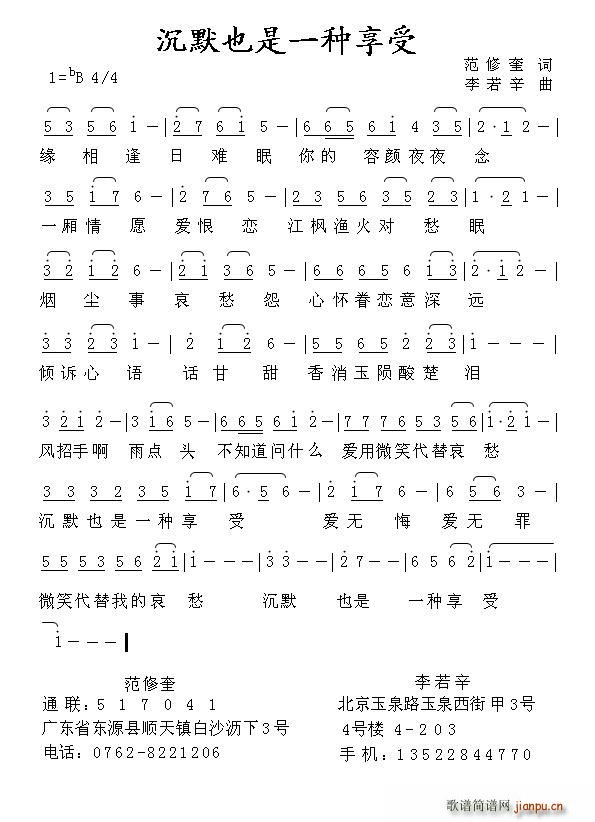 沉默也是一种享受
1=ᵇB 4/4
范修奎 词
李若辛 曲
5 3 5 6 i - | 2̇ 7 6 i 5 - | 6 6 5 6 i 4 3 5 | 2̇ · i 2̇ - |
缘 相 逢 日 难 眠 你的 容颜夜夜 念
3 5 i 7 6 - | 2̇ 7 6 5 - | 3 5 3 5 3 5 2 3 | 1 · 2 1 - |
一厢情 愿 爱恨 恋 江枫渔火对 愁 眠
3̇ 2̇ i 2̇ 6 - | 2̇ i 3 6 5 - | 6 6 6 5 6 5 i 3̇ | 2̇ · i 2̇ - |
烟 尘 事 哀 愁 怨 心怀眷恋意深 远
3̇ 3̇ 2̇ 3̇ i - | 2̇ i 2̇ 6 - | 5 5 6 5 2̇ 2̇ 2̇ 3̇ | i - - - |
倾诉心 语 话 甘 甜 香消玉陨酸楚 泪
3̇ 2̇ i 2̇ - | 3 i 6 5 - | 6 6 5 6 i 2̇ - | 7 7 7 6 5 3 5 6 | i · 2̇ i - |
风招手啊 雨点 头 不知道问什么 爱用微笑代替哀 愁
3 3 3 2 3 5 i 7 | 6 · 5 6 - | 2̇ i 7 6 - | 6 5 6 3 - |
沉默也是一种享 受 爱无 悔 爱无 罪
5 5 5 3 5 6 2̇ i | i - - - | 3̇ 3̇ - - | 2̇ 7 - - | 6 5 6 - - | i - - - |
微笑代替我的哀 愁 沉默 也是 一种享 受
i - - - ‖
范修奎
李若辛
通联：5 1 7 0 4 1
北京玉泉路玉泉西街 甲3号
广东省东源县顺天镇白沙沥下3号
4号楼 4-203
电话：0762-8221206
手机：13522844770
歌谱简谱网
jianpu.cn